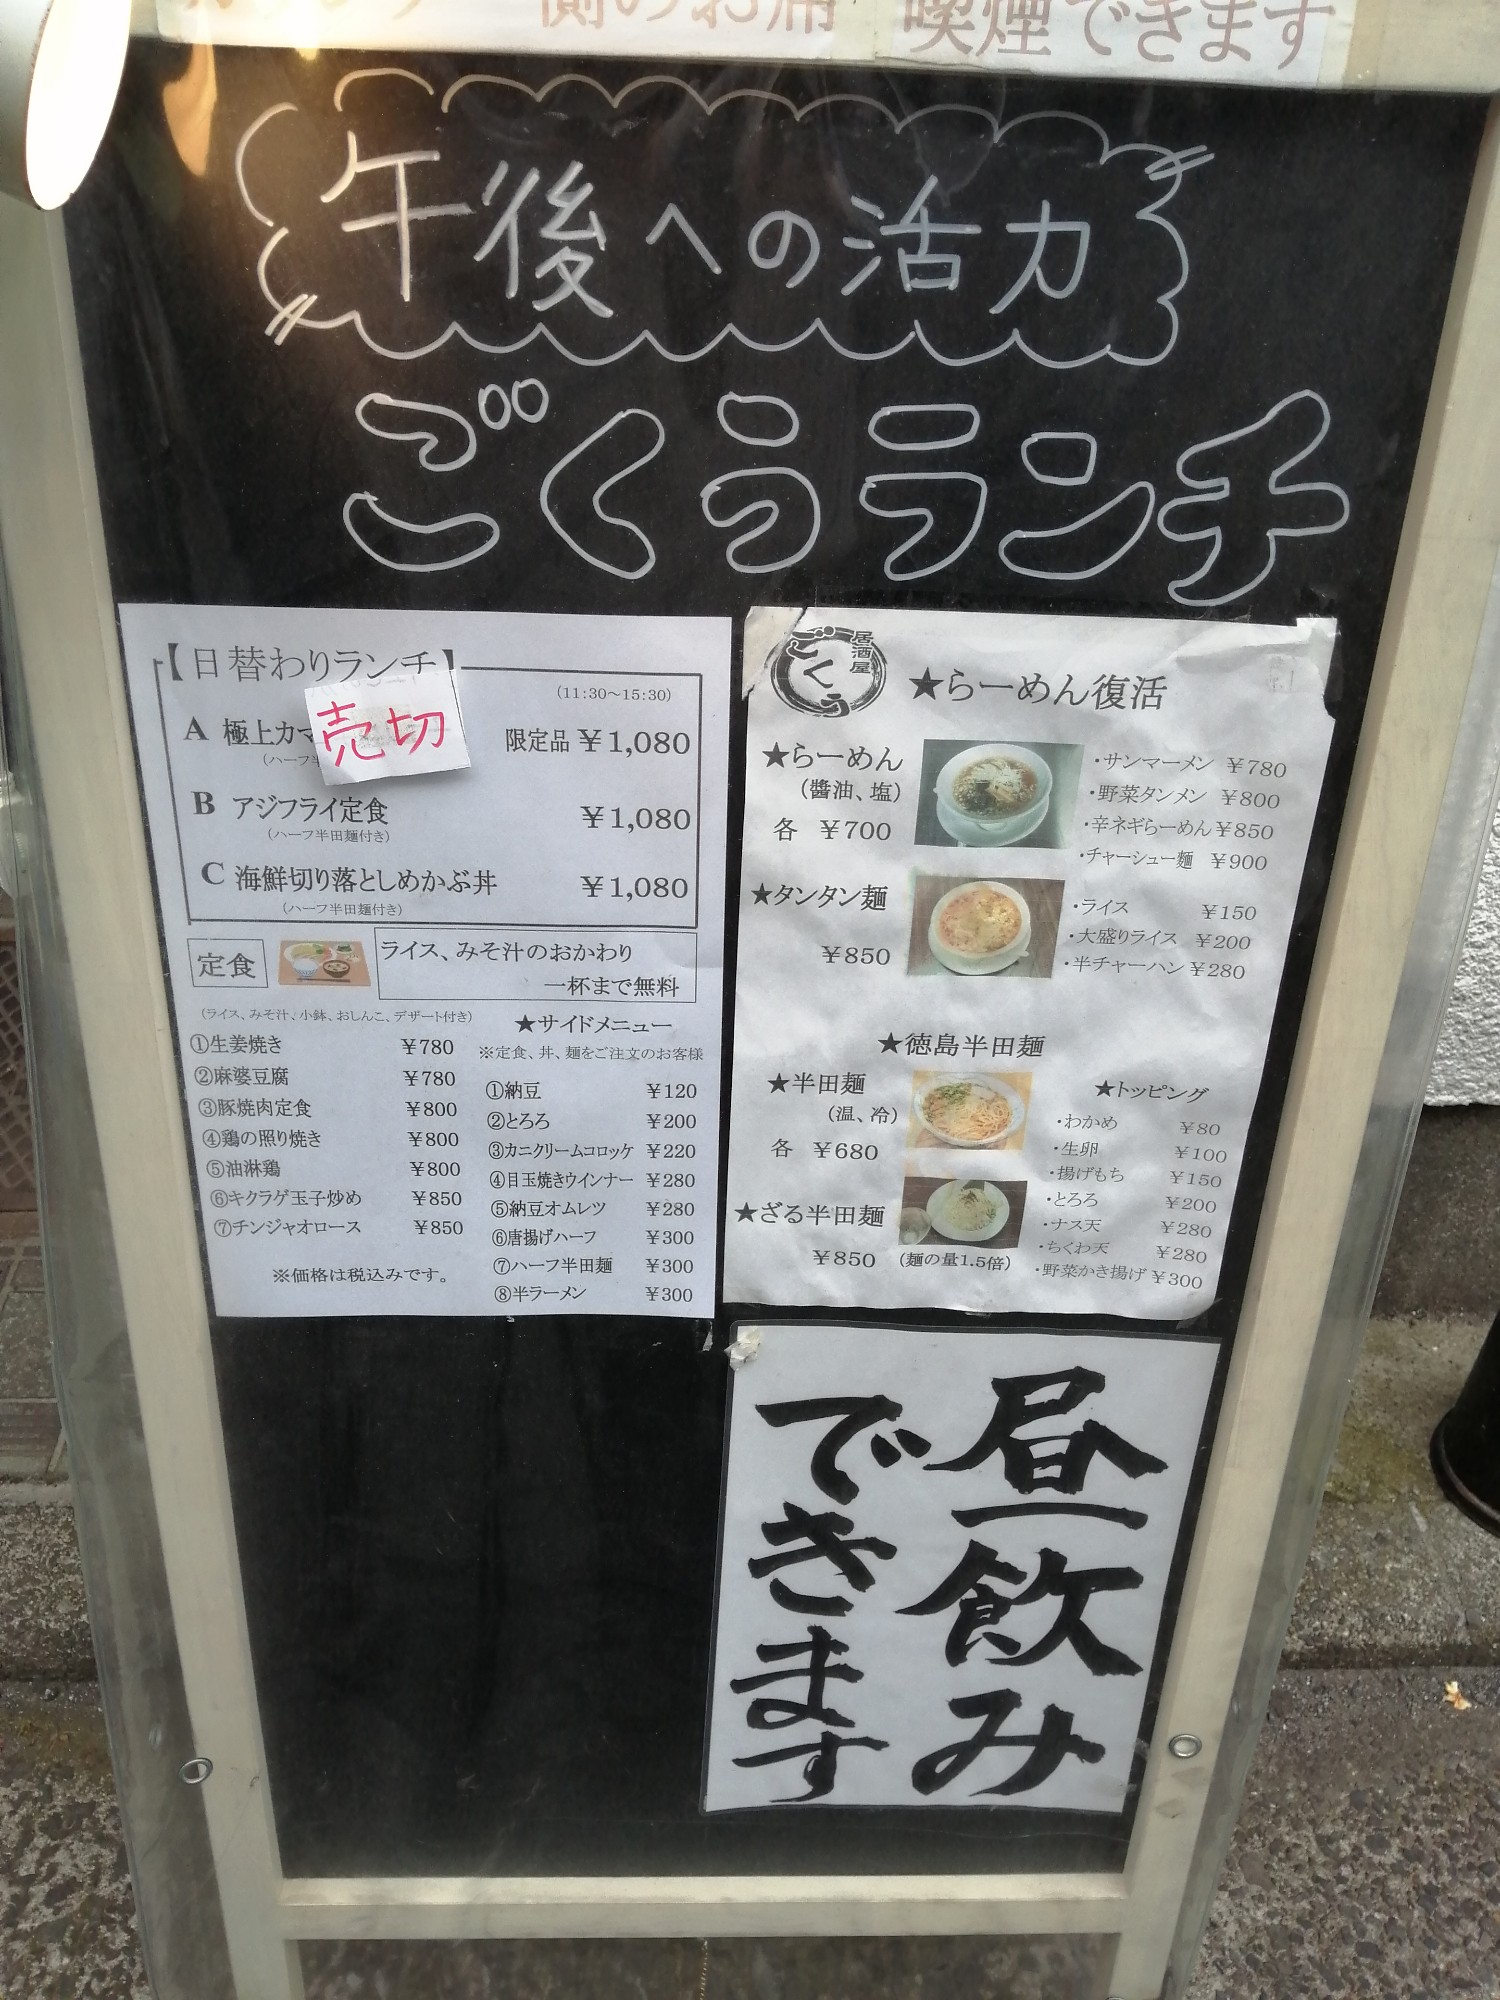 側のお席 喫煙できます
午後への活力
ごくうランチ
【日替わりランチ】
(11:30～15:30)
A 極上カマ 売切 限定品 ￥1,080
(ハーフ半
B アジフライ定食 ￥1,080
(ハーフ半田麺付き)
C 海鮮切り落としめかぶ丼 ￥1,080
(ハーフ半田麺付き)
定食
ライス、みそ汁のおかわり
一杯まで無料
(ライス、みそ汁、小鉢、おしんこ、デザート付き)
①生姜焼き ￥780
②麻婆豆腐 ￥780
③豚焼肉定食 ￥800
④鶏の照り焼き ￥800
⑤油淋鶏 ￥800
⑥キクラゲ玉子炒め ￥850
⑦チンジャオロース ￥850
※価格は税込みです。
★サイドメニュー
※定食、丼、麺をご注文のお客様
①納豆 ￥120
②とろろ ￥200
③カニクリームコロッケ ￥220
④目玉焼きウインナー ￥280
⑤納豆オムレツ ￥280
⑥唐揚げハーフ ￥300
⑦ハーフ半田麺 ￥300
⑧半ラーメン ￥300
居酒屋
ごくう
★らーめん復活
★らーめん
(醤油、塩)
各 ￥700
★タンタン麺
￥850
・サンマーメン ￥780
・野菜タンメン ￥800
・辛ネギらーめん ￥850
・チャーシュー麺 ￥900
・ライス ￥150
・大盛りライス ￥200
・半チャーハン ￥280
★徳島半田麺
★半田麺
(温、冷)
各 ￥680
★ざる半田麺
￥850 (麺の量1.5倍)
★トッピング
・わかめ ￥80
・生卵 ￥100
・揚げもち ￥150
・とろろ ￥200
・ナス天 ￥280
・ちくわ天 ￥280
・野菜かき揚げ ￥300
昼飲み
できます